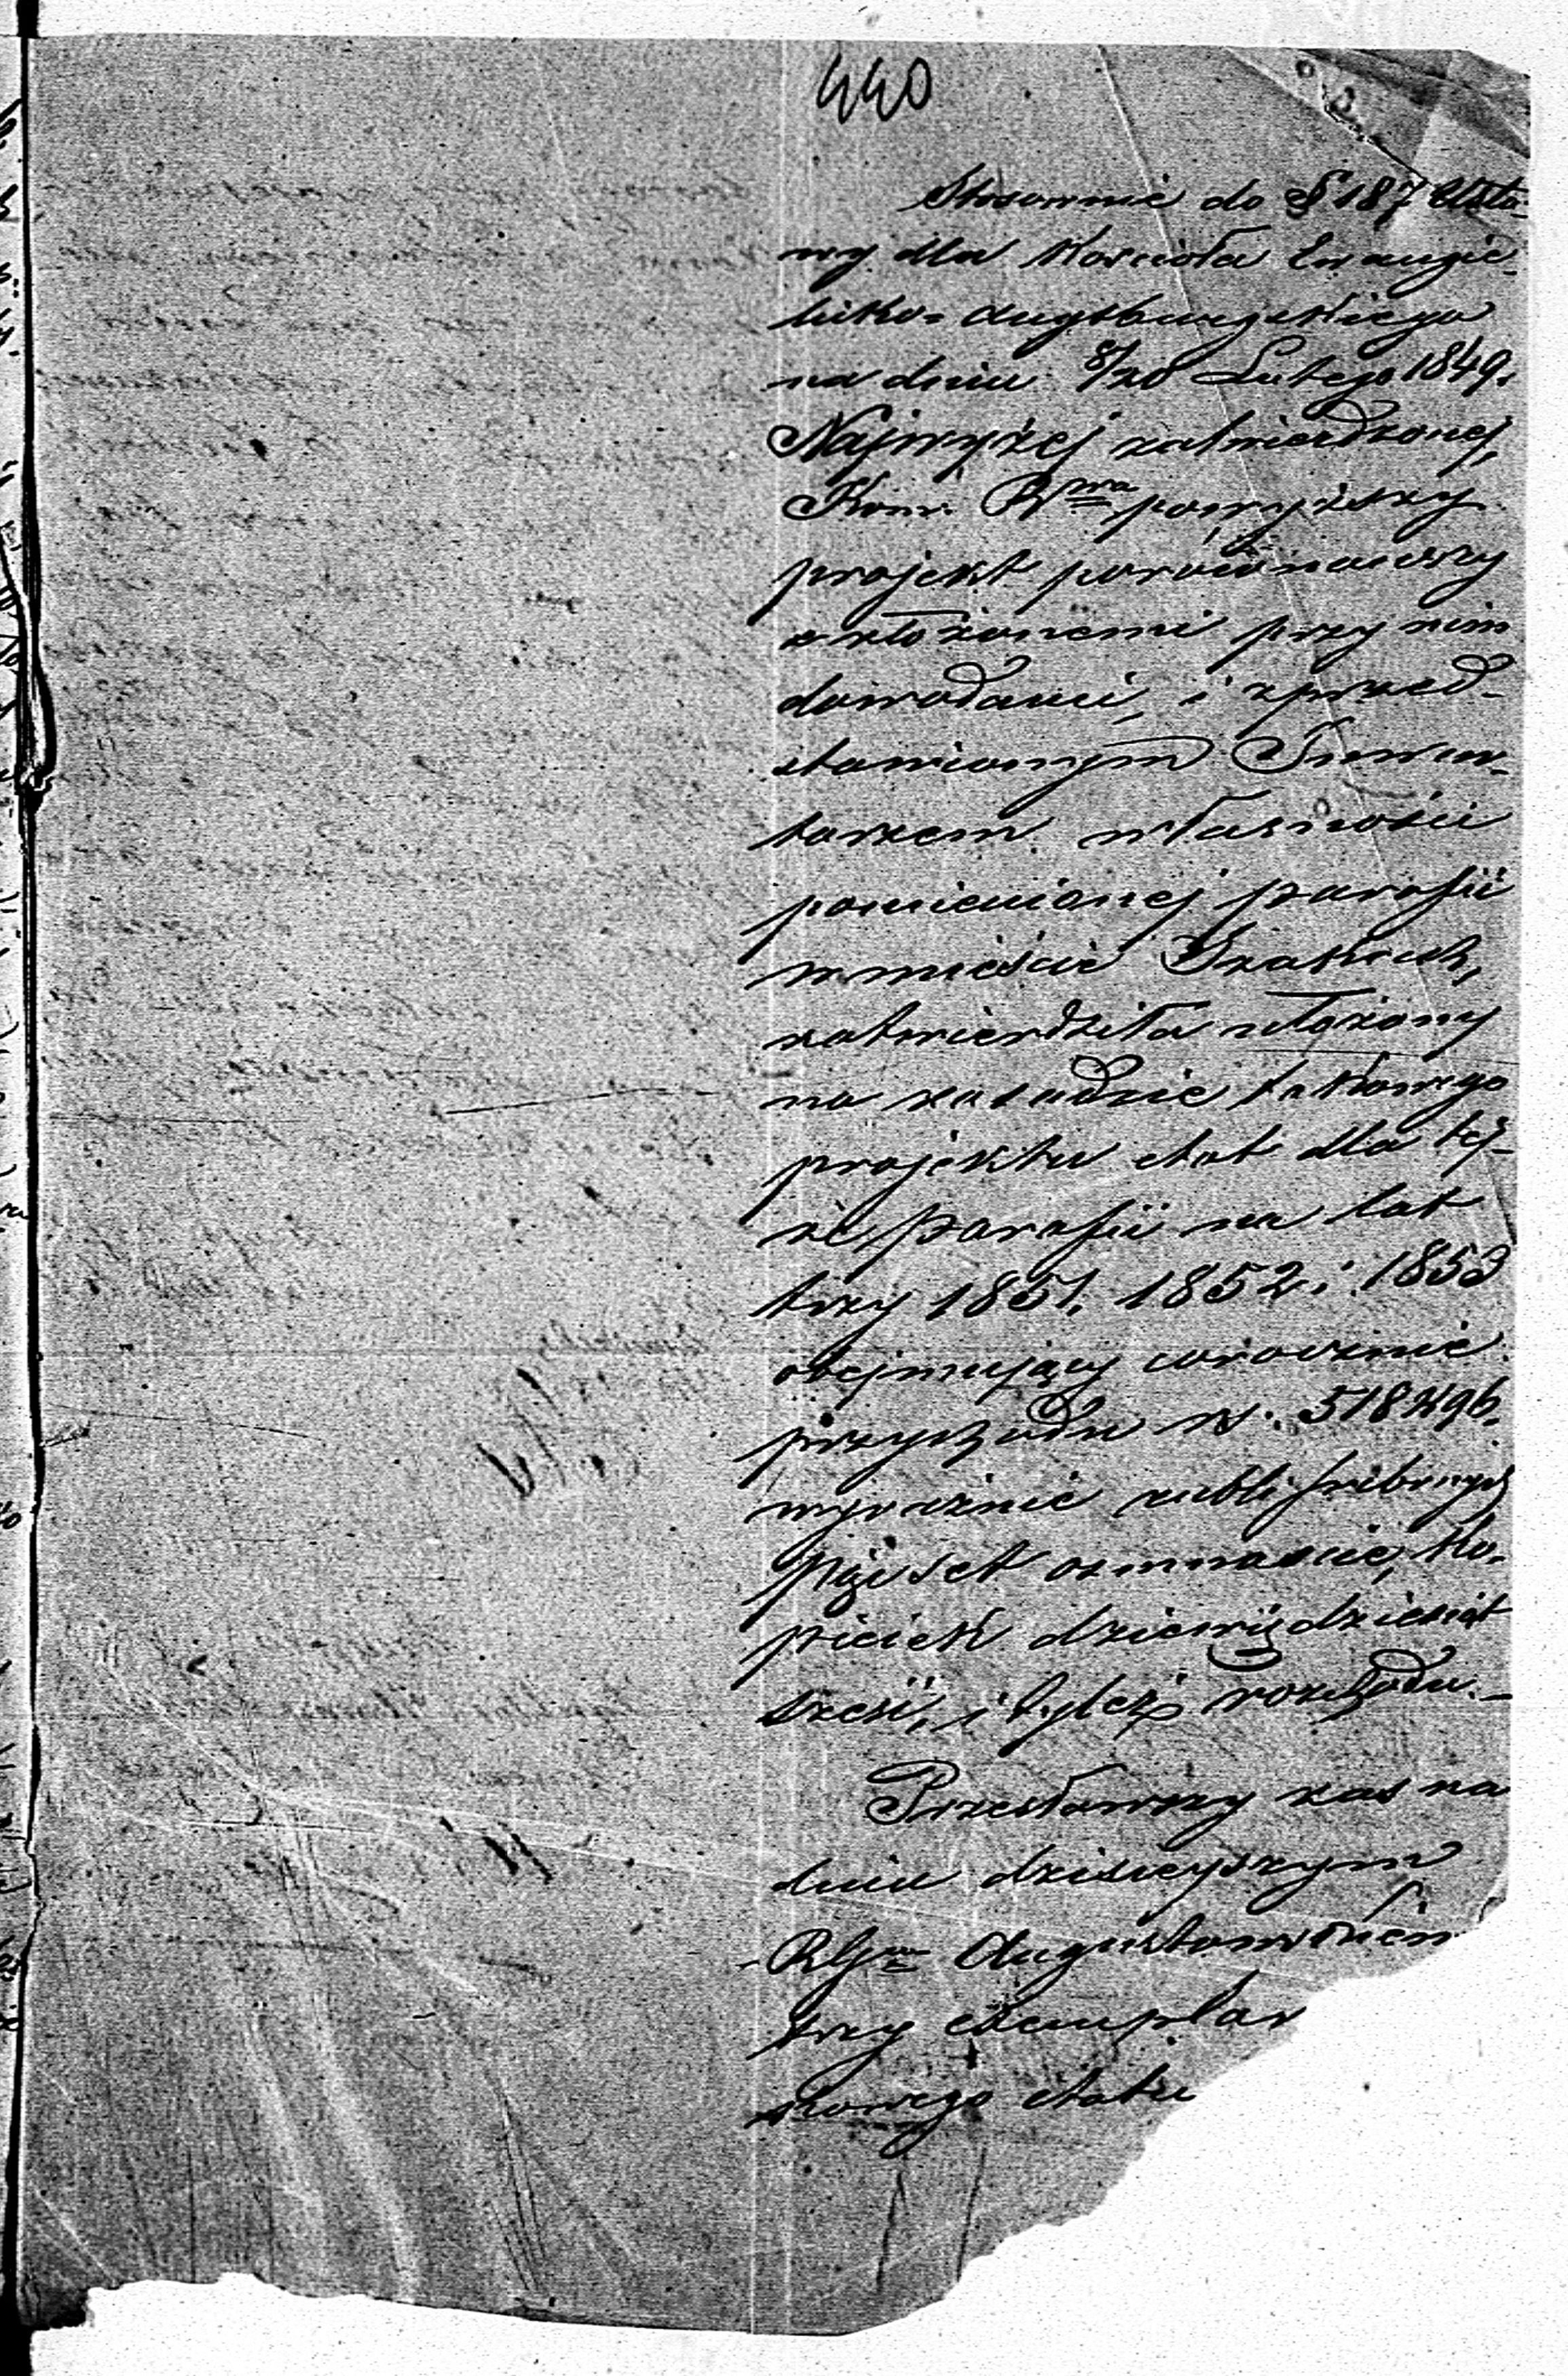 440
Stosownie do § 187 Usta-
wy dla Kościoła Ewangie-
licko-Augsburgskiego
na dniu 8/20 Lutego 1849.
Najwyżej zatwierdzonej,
Kom. Rwa powyższy
projekt porównawszy
z złożonemi przy nim
dowodami, i z przed-
stawionym Inwen-
tarzem własności
pomienionej parafii
w mieście Szakach,
zatwierdziła ułożony
na zasadzie takowego
projektu etat dla tej-
że parafii na lat
trzy 1851. 1852. i 1853
obejmujący corocznie
przychodu rs. 518 k 96.
wyraźnie rubli srebrnych
pięćset osmnaście, ko-
pieiek dziewięćdziesiąt
sześć, i tyleż rozchodu. —
Przesławszy zaś na
dniu dzisiejszym
Augustowskiem
trzy exemplar
etatu